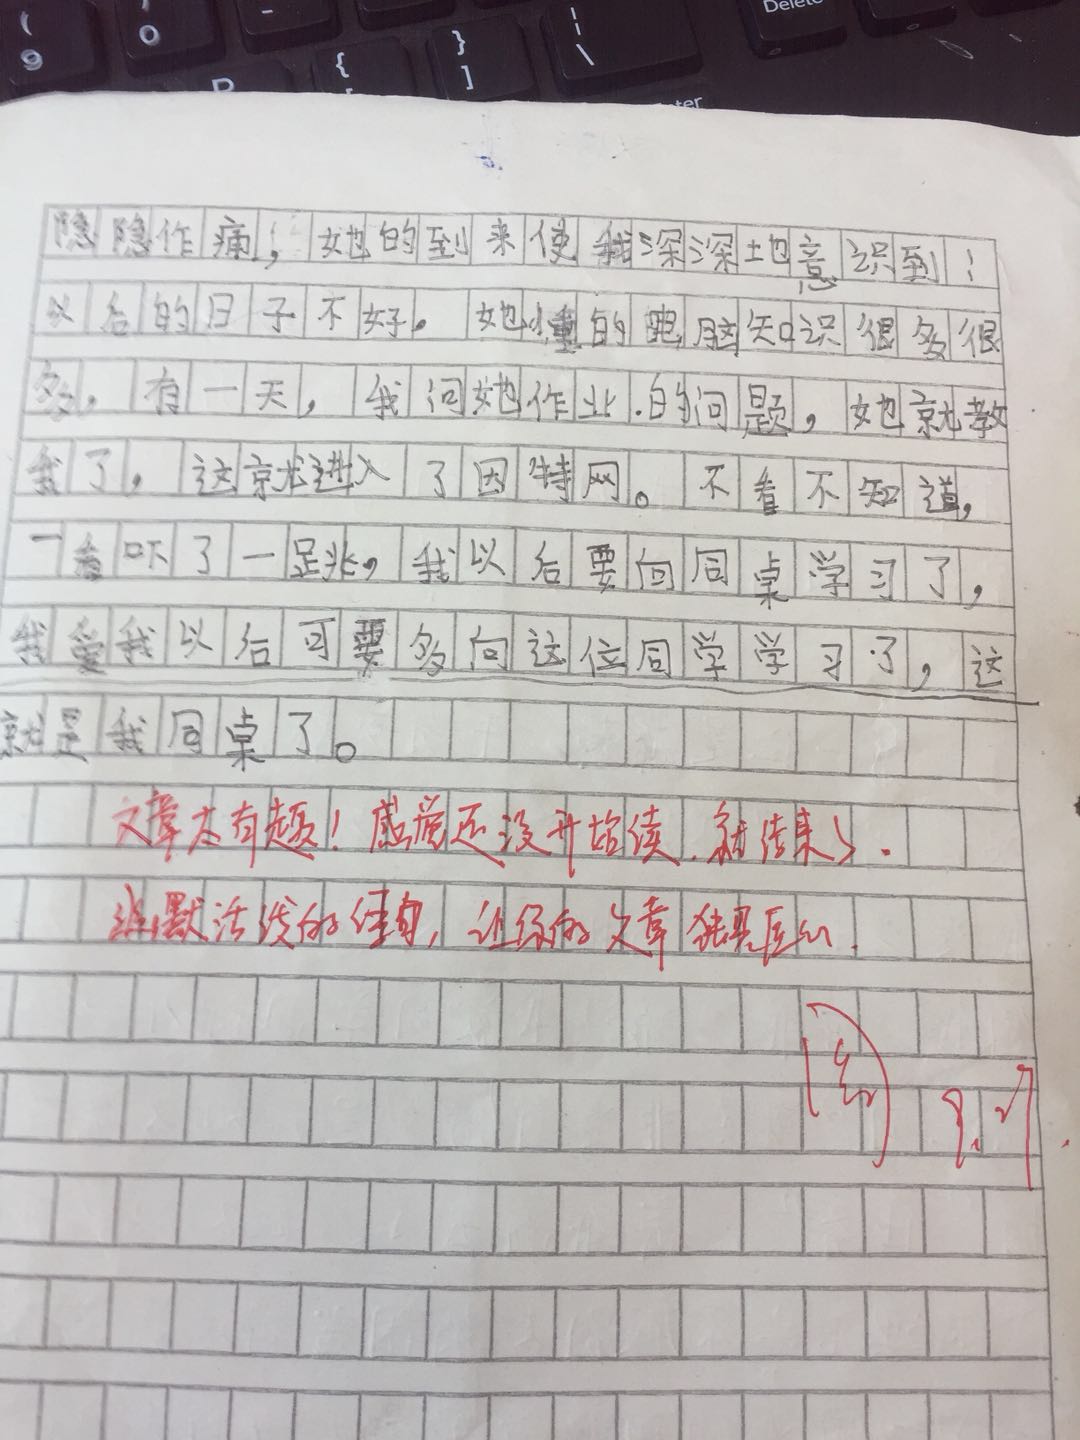 Delete
( 9
) 0
-
{ [
} ]
| \
P
ter
隐隐作痛，她的到来使我深深地意识到！
以后的日子不好。她懂的电脑知识很多很
多，有一天，我问她作业的问题，她就教
我了，这就进入了因特网。不看不知道，
一看吓了一跳，我以后要向同桌学习了，
我爱我以后可要多向这位同学学习了，这
就是我同桌了。
文章太有趣！感觉还没开始读，就结束了.
幽默活泼的佳句，让你的文章独具匠心.